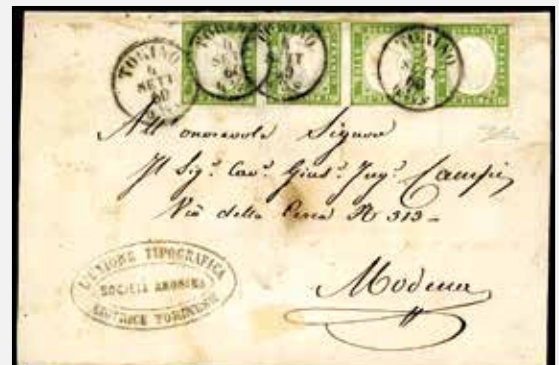 TORINO
4
SETT
60
TORINO
4
SETT
60
TORINO
4
SETT
60
TORINO
SETT
60
All' onorevole Signore
Il Sig.r Cav.r Gius.e Ing.r Campi
Via della Cerca N 313 =
Modena
L'UNIONE TIPOGRAFICA
SOCIETÀ ANONIMA
EDITRICE TORINESE